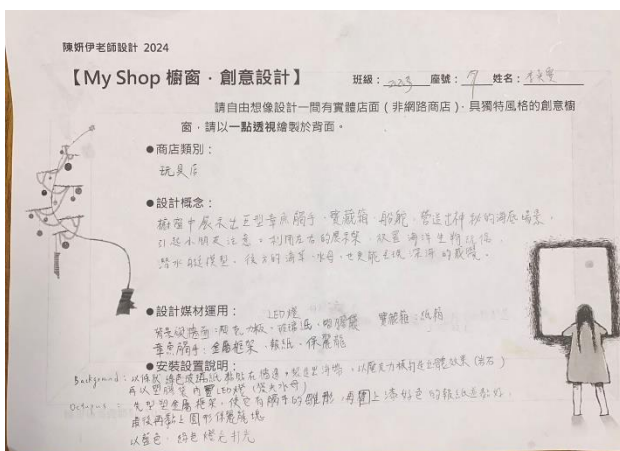 陳妍伊老師設計 2024
【My Shop 櫥窗．創意設計】 班級： 223 座號： 9 姓名：
請自由想像設計一間有實體店面（非網路商店）、具獨特風格的創意櫥
窗，請以一點透視繪製於背面。
●商店類別：
玩具店
●設計概念：
櫥窗中展示出巨型章魚觸手、寶藏箱、船舵，營造出神秘的海底場景，
引起小朋友注意。利用左右的展示架，放置海洋生物玩偶、
潛水艇模型。後方的海草、水母，也更能呈現深海的感覺。
●設計媒材運用： LED燈
背景牆面：瓦楞板、玻璃紙、塑膠袋 寶藏箱：紙箱
章魚觸手：金屬框架、報紙、保麗龍
●安裝設置說明：
Background：以綠色玻璃紙黏貼在牆邊，製造出海草，以瓦楞板打造立體效果（岩石）
再以塑膠袋內置LED燈（營造水母）
Octopus：先塑型金屬框架，使它有觸手的雛形，再圍上漆好色的報紙並黏好，
最後再黏上圓形保麗龍塊
以藍色、綠色燈光打光